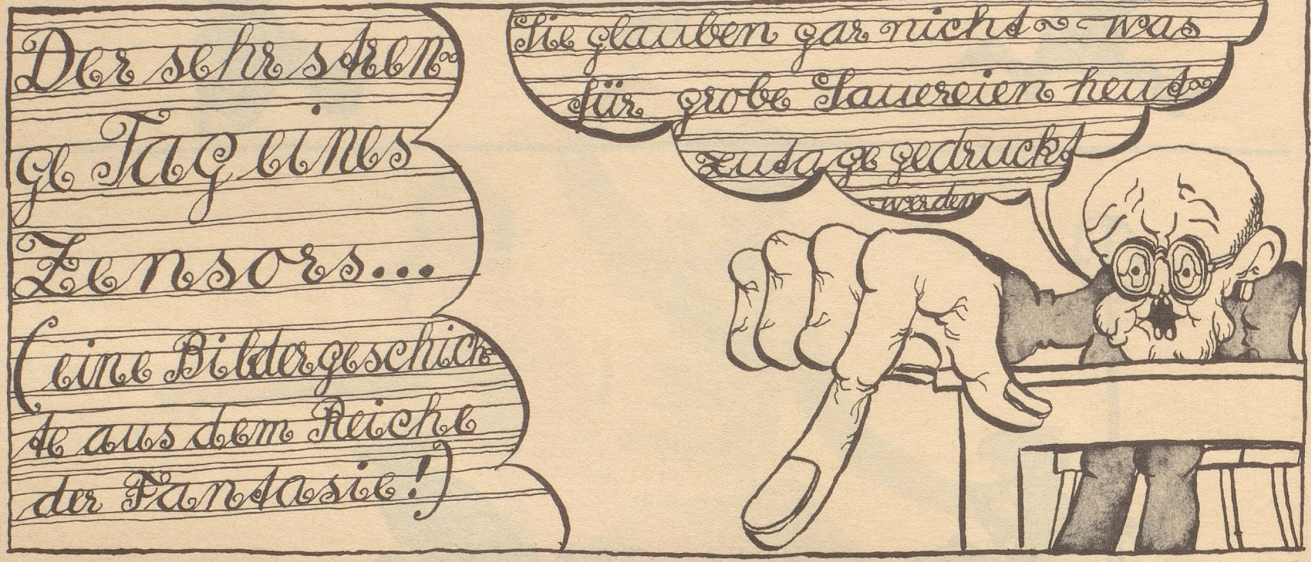 Der sehr stren-
ge Tag eines
Zensors...
(eine Bildergeschich-
te aus dem Reiche
der Fantasie!)
Sie glauben gar nicht - was
für grobe Sauereien heut-
zutage gedruckt
werden